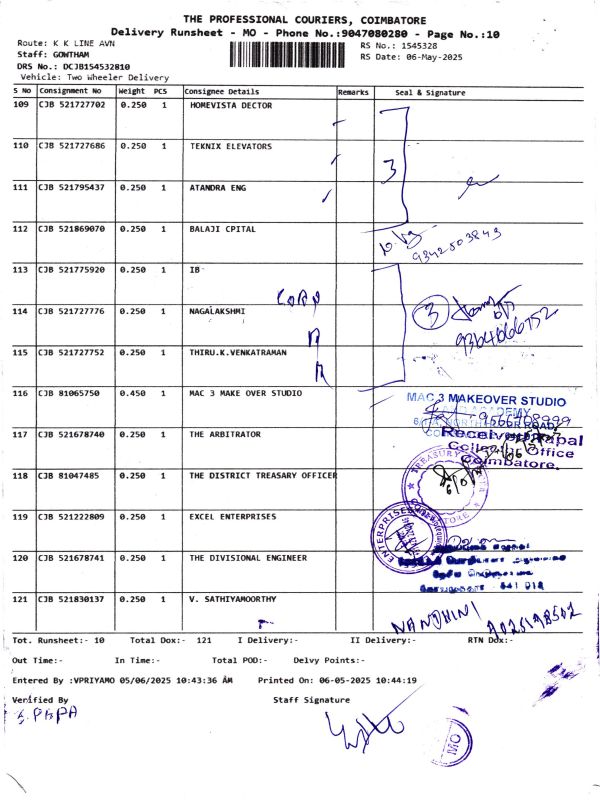 THE PROFESSIONAL COURIERS, COIMBATORE
Delivery Runsheet - MO - Phone No.:9047080280 - Page No.:10
Route: K K LINE AVN
RS No.: 1545328
Staff: GOWTHAM
RS Date: 06-May-2025
DRS No.: DCJB154532810
Vehicle: Two Wheeler Delivery
S No Consignment No Weight PCS Consignee Details Remarks Seal & Signature
109 CJB 521727702 0.250 1 HOMEVISTA DECTOR
110 CJB 521727686 0.250 1 TEKNIX ELEVATORS
3
111 CJB 521795437 0.250 1 ATANDRA ENG
112 CJB 521869070 0.250 1 BALAJI CPITAL
9342503843
113 CJB 521775920 0.250 1 IB
CORP
114 CJB 521727776 0.250 1 NAGALAKSHMI
3
9364066752
115 CJB 521727752 0.250 1 THIRU.K.VENKATRAMAN
116 CJB 81065750 0.450 1 MAC 3 MAKE OVER STUDIO
MAC 3 MAKEOVER STUDIO
117 CJB 521678740 0.250 1 THE ARBITRATOR
Office
Coimbatore.
118 CJB 81047485 0.250 1 THE DISTRICT TREASARY OFFICER
TREASURY
119 CJB 521222809 0.250 1 EXCEL ENTERPRISES
ENTERPRISES
120 CJB 521678741 0.250 1 THE DIVISIONAL ENGINEER
641 018
121 CJB 521830137 0.250 1 V. SATHIYAMOORTHY
NANDHINI
Tot. Runsheet:- 10 Total Dox:- 121 I Delivery:- II Delivery:- RTN Dox:-
Out Time:- In Time:- Total POD:- Delvy Points:-
Entered By :VPRIYAMO 05/06/2025 10:43:36 AM Printed On: 06-05-2025 10:44:19
Verified By Staff Signature
S. PAPA
MO